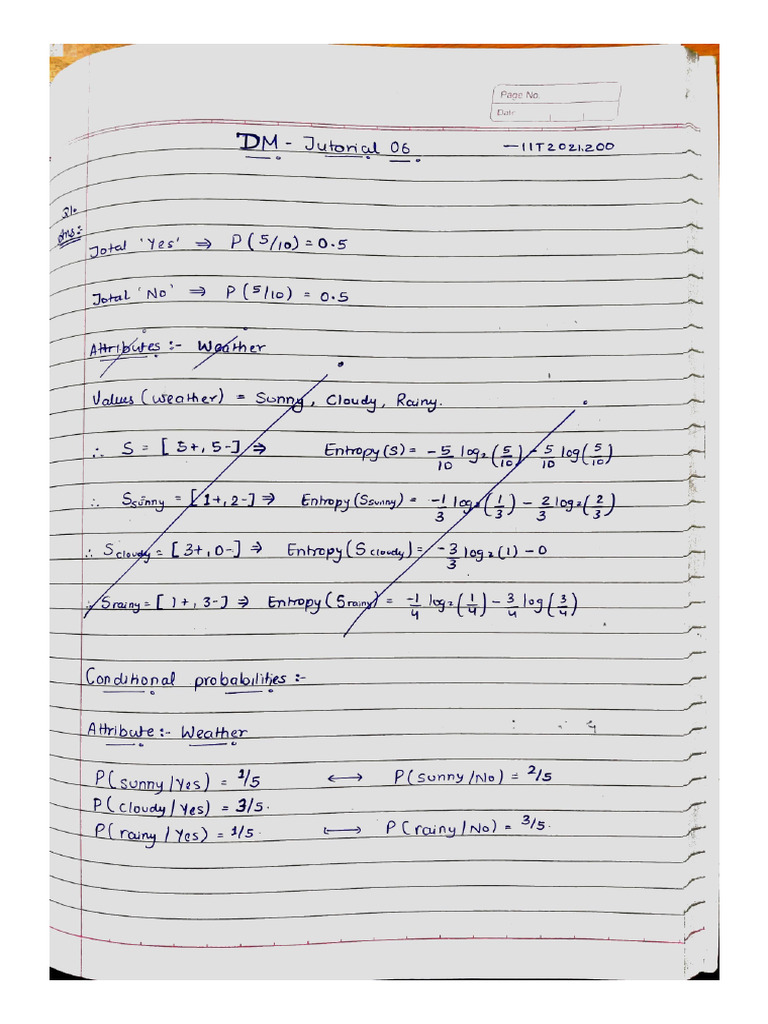 Page No.
Date
DM - Tutorial 06 - IIT2021200
Q1.
Ans:-
Total 'Yes' ⇒ P(5/10) = 0.5
Total 'No' ⇒ P(5/10) = 0.5
Attributes :- Weather
Values (weather) = Sunny, Cloudy, Rainy.
∴ S = [5+, 5-] ⇒ Entropy(S) = -5/10 log₂(5/10) - 5/10 log(5/10)
∴ S sunny = [1+, 2-] ⇒ Entropy(S sunny) = -1/3 log₂(1/3) - 2/3 log₂(2/3)
∴ S cloudy = [3+, 0-] ⇒ Entropy(S cloudy) = -3/3 log₂(1) - 0
∴ S rainy = [1+, 3-] ⇒ Entropy(S rainy) = -1/4 log₂(1/4) - 3/4 log(3/4)
Conditional probabilities :-
Attribute :- Weather
P(sunny/Yes) = 1/5 ↔ P(sunny/No) = 2/5
P(cloudy/Yes) = 3/5.
P(rainy/Yes) = 1/5. ↔ P(rainy/No) = 3/5.